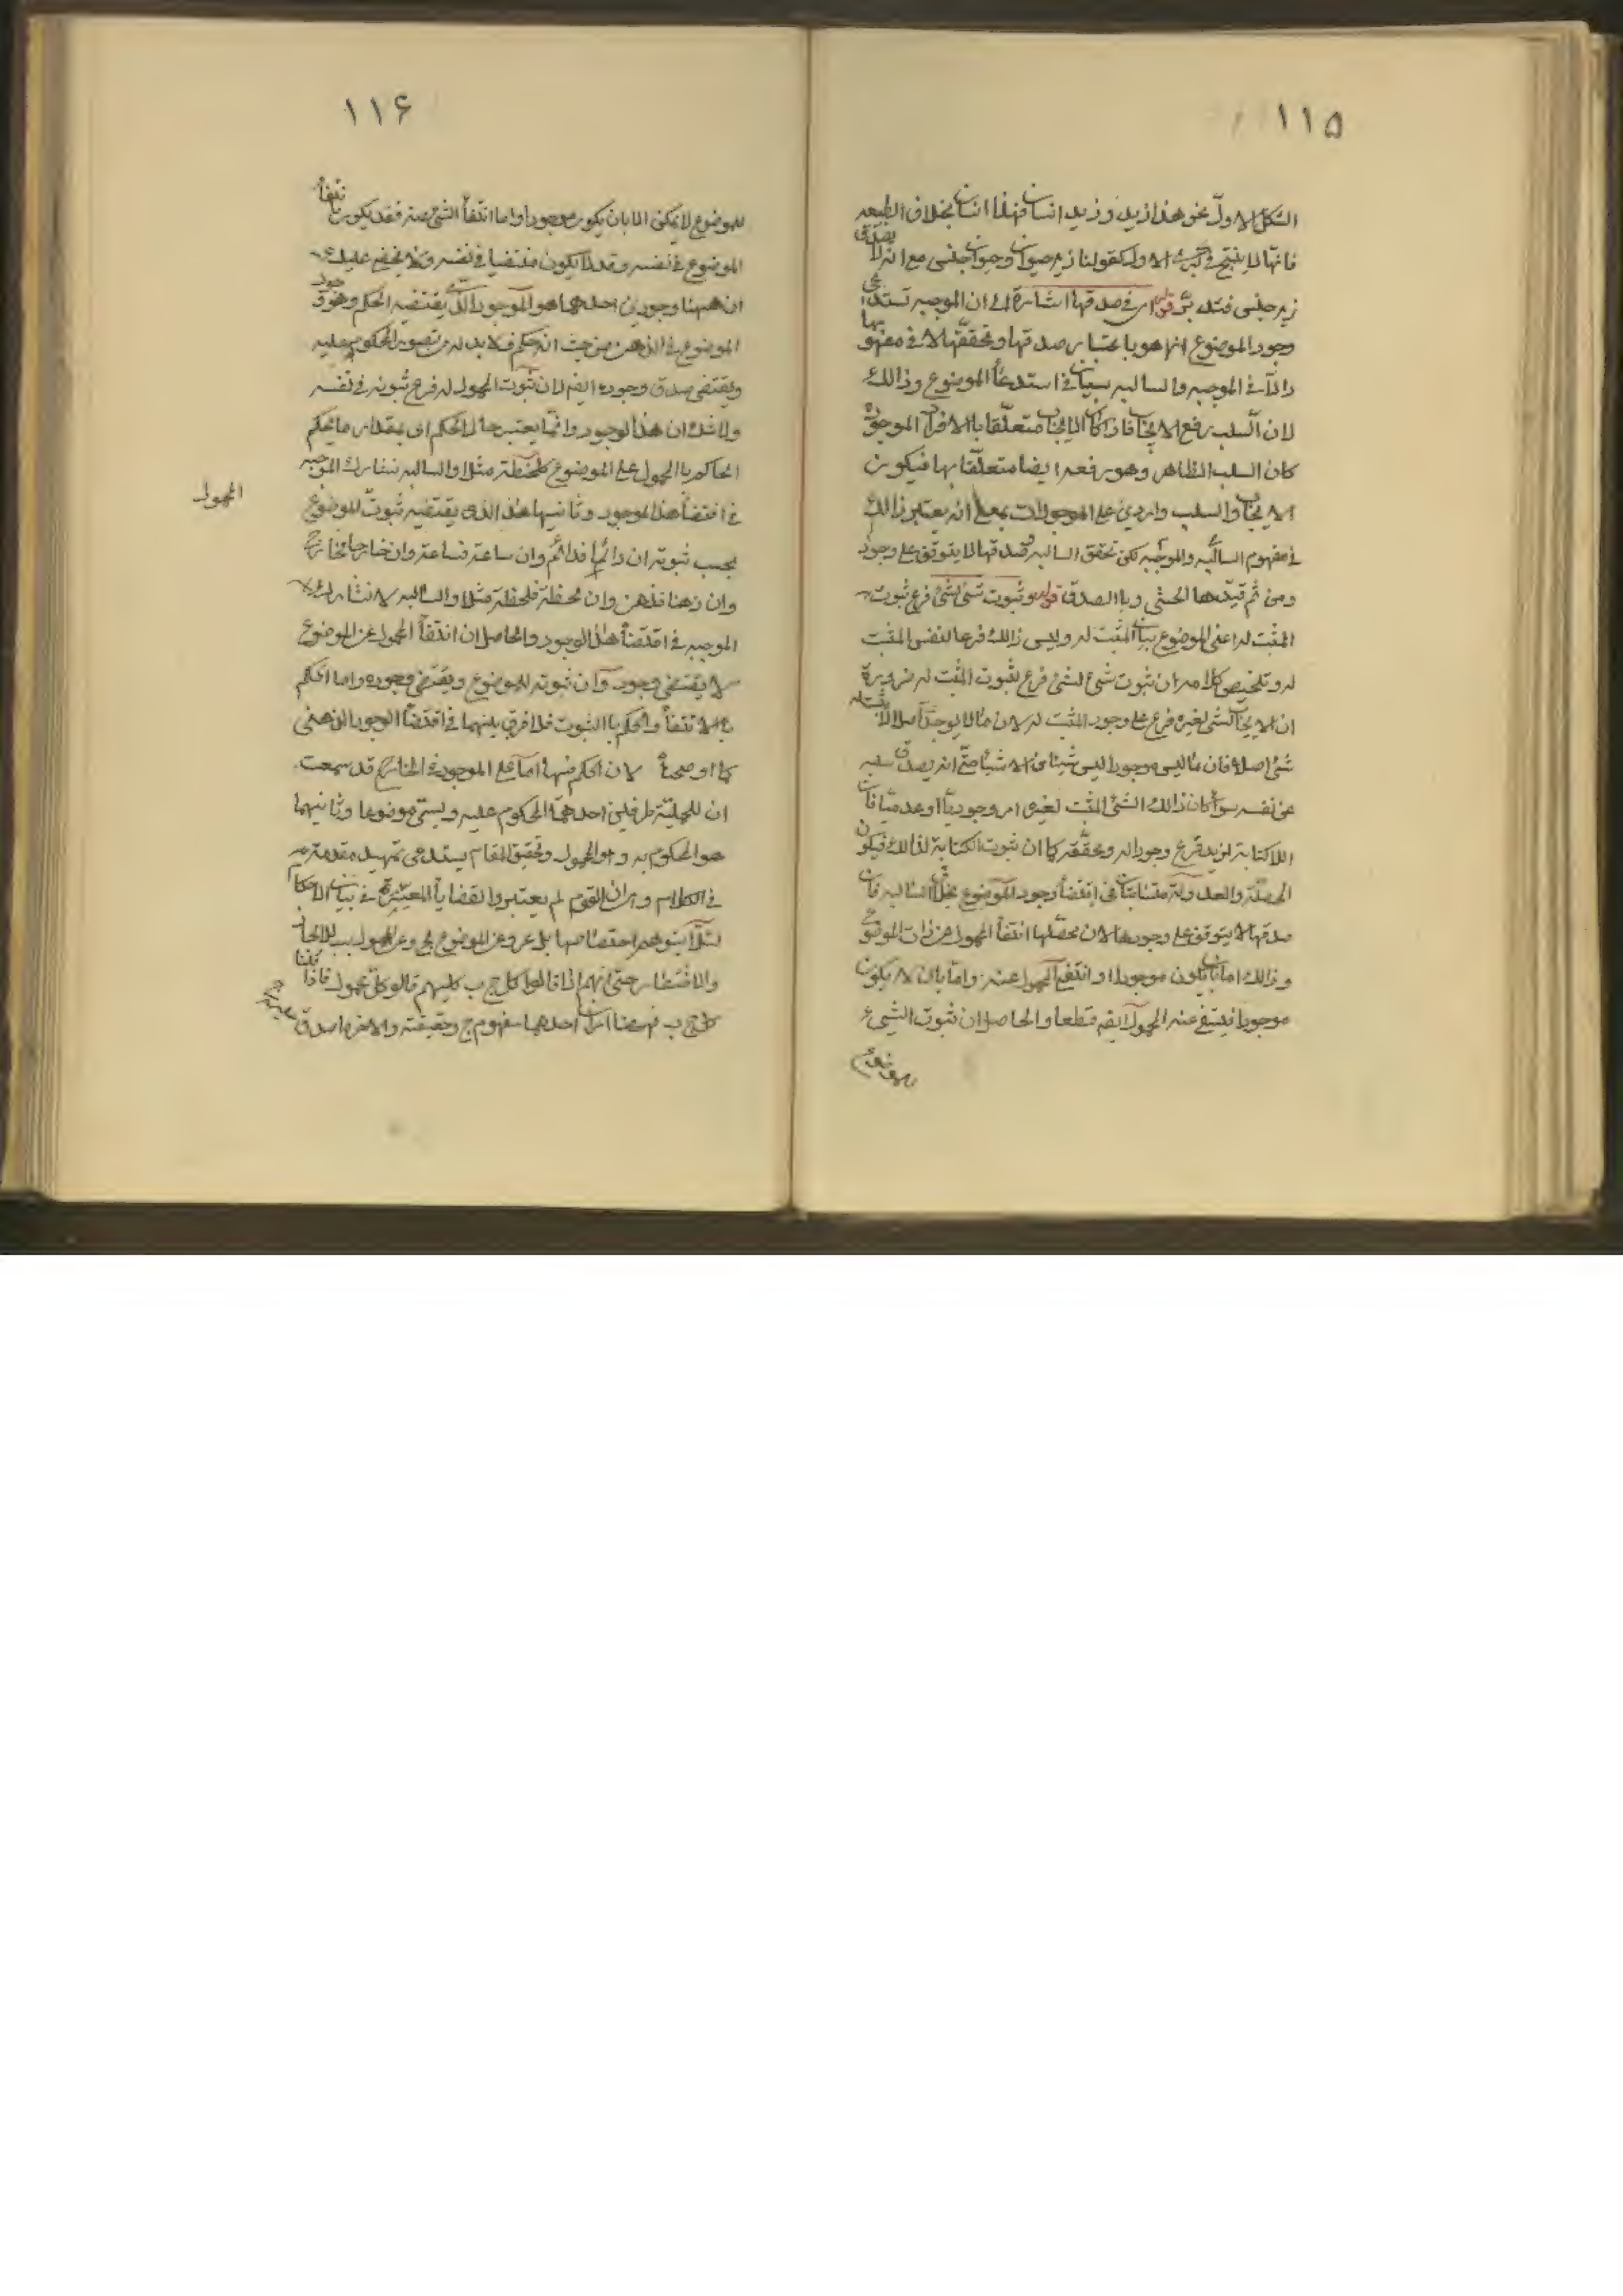 ١١۵
الشكل الاول نحو هذا زيد وزيد انسان فهذا انسان بخلاف الطبيعه
فانها لا ينتج في كبرى الاول كقولنا زيد حيوان وحيوان جنس مع انه لا يصدق
زيد جنس فتدبر قوله اى في صدقها اشارة الى ان الموجبه تستدعى
وجود الموضوع انما هو باعتبار صدقها وتحققها لا في مفهومها
والا في الموجبه والسالبه سيان في استدعاء الموضوع وذالك
لان السلب رفع الايجاب فاذا كان الايجاب متعلقا بالافراد الموجوده
كان السلب الظاهر وهو رفعه ايضا متعلقا بها فيكون
الايجاب والسلب واردين على الموجودات بمعنى انه يعتبر ذالك
في مفهوم السالبه والموجبه لكن تحقق السالبه وصدقها لا يتوقف على وجود
ومن ثم قيدها المحشى وبا الصدق قوله وثبوت شئ لشئ فرع ثبوت
المثبت له اعنى الموضوع بيان المثبت له وليس ذالك فرعا لنفس المثبت
له وتلخيص كلامه ان ثبوت شئ لشئ فرع لثبوت المثبت له ضرورة
ان الايجاب لشئ لغيره فرع على وجود المثبت له لان مالا يوجد اصلا لا يثبت له
شئ اصلا فان ما ليس موجودا ليس شيئا من الاشياء حتى انه يصدق سلبه
عن نفسه سواء كان ذالك الشئ المثبت لغيره امر وجوديا او عدميا فان
اللاكتابة لزيد فرع وجود له وتحققه كما ان ثبوت الكتابة لذالك فيكون
المحصلة والعدولة متشابهتان في اقتضاء وجود الموضوع بخلاف السالبه فان
صدقها لا يتوقف على وجودها لان محصلها انتفاء المحمول عن ذات الموضوع
وذالك اما بان يكون موجودا وانتفى المحمول عنه واما بان لا يكون
موجودا فينتفى عنه المحمول ايضا قطعا والحاصل ان ثبوت الشئ
١١۶
للموضوع لا يمكن الا بان يكون موجودا واما انتفاء الشئ عنه فقد يكون بانتفاء
الموضوع في نفسه وقد لا يكون منتفيا في نفسه ولا يخفى عليك
ان ههنا وجودين احدهما هو الموجود الذى يقتضيه الحكم وهو وجود
الموضوع في الذهن من حيث انه حكم فلا بد له من تصور المحكوم عليه
ويقتضى صدق وجوده ايضا لان ثبوت المحمول له فرع ثبوته في نفسه
ولا شك ان هذا الوجود وانما يعتبر حال الحكم اى بمقدار ما يحكم
الحاكم با المحمول على الموضوع كلحظة مثلا والسالبه تشارك الموجبه
في اقتضاء هذا الموجود وثانيهما هذا الذى يقتضيه ثبوت للموضوع
المحمول
بحسب ثبوته ان دائما فدائم وان ساعة فساعة وان خارجا فخارج
وان ذهنا فذهن وان لحظة فلحظة مثلا والسالبه لا تشارك
الموجبه في اقتضاء هذا الوجود والحاصل ان انتفاء المحمول عن الموضوع
لا يقتضى وجوده وان ثبوته للموضوع ويقتضى وجوده واما الحكم
با الانتفاء والحكم با الثبوت فلا فرق بينهما في اقتضاء الوجود الذهنى
كما اوضحناه لان الحكم فيها اما على الموجود في الخارج قد سمعت
ان للحملية طرفين احدهما المحكوم عليه ويسمى موضوعا وثانيهما
هو المحكوم به وهو المحمول وتحقيق المقام يستدعى تمهيد مقدمة
في الكلام وهى ان القوم لم يعتبروا القضايا المعتبرة في بيان الاحكام
لئلا يتوهم اختصاصها بل عبروا عن الموضوع بج وعن المحمول بب للايجاز
والاختصار حتى انهم اذا قالوا كل ج ب كانهم قالو كل محمول فاذا قلنا
كل ج ب فهيهنا امران احدهما مفهوم ج وحقيقته والاخر ما صدق